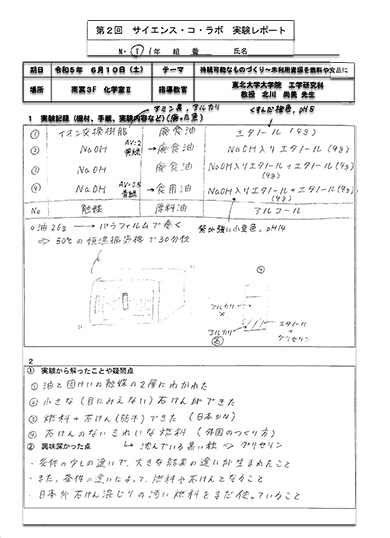 第2回 サイエンス・コ・ラボ 実験レポート
N・T 1年 組 番 氏名
期日 令和5年 6月10日(土) テーマ 持続可能なものづくり~未利用資源を燃料や食品に
場所 南翼3F 化学室Ⅱ 指導教官 東北大学大学院 工学研究科
教授 北川 尚美 先生
1 実験記録(機材、手順、実験内容など)
① イオン交換樹脂 廃食油 エタノール(4g)
② NaOH 廃食油 NaOH入りエタノール(4g)
③ NaOH 廃食油 NaOH入りエタノール+エタノール(4g)
(4g)
④ NaOH 食用油 NaOH入りエタノール+エタノール(4g)
(4g)
No 触媒 原料油 アルコール
○油26g → パラフィルムで巻く
⇒ 50℃の恒温振盪機で30分位
pH14
アルカリ
アルカリ
エタノール
+
グリセリン
2
① 実験から解ったことや疑問点
① 油と固体の触媒の2層にわかれた
② 小さな(目にみえない)石けんができた
③ 燃料+石けん(弱干)できた (日本が4)
④ 石けんのないきれいな燃料 (外国のつくり方)
② 興味深かった点 ↳ 沈んでいる黒い粒 ⇒ グリセリン
・条件の少しの違いで、大きな結果の違いが生まれたこと
・また、条件の違いによって、燃料や石けんとなること
・日本が石けん混じりの汚い燃料をまだ使っていること